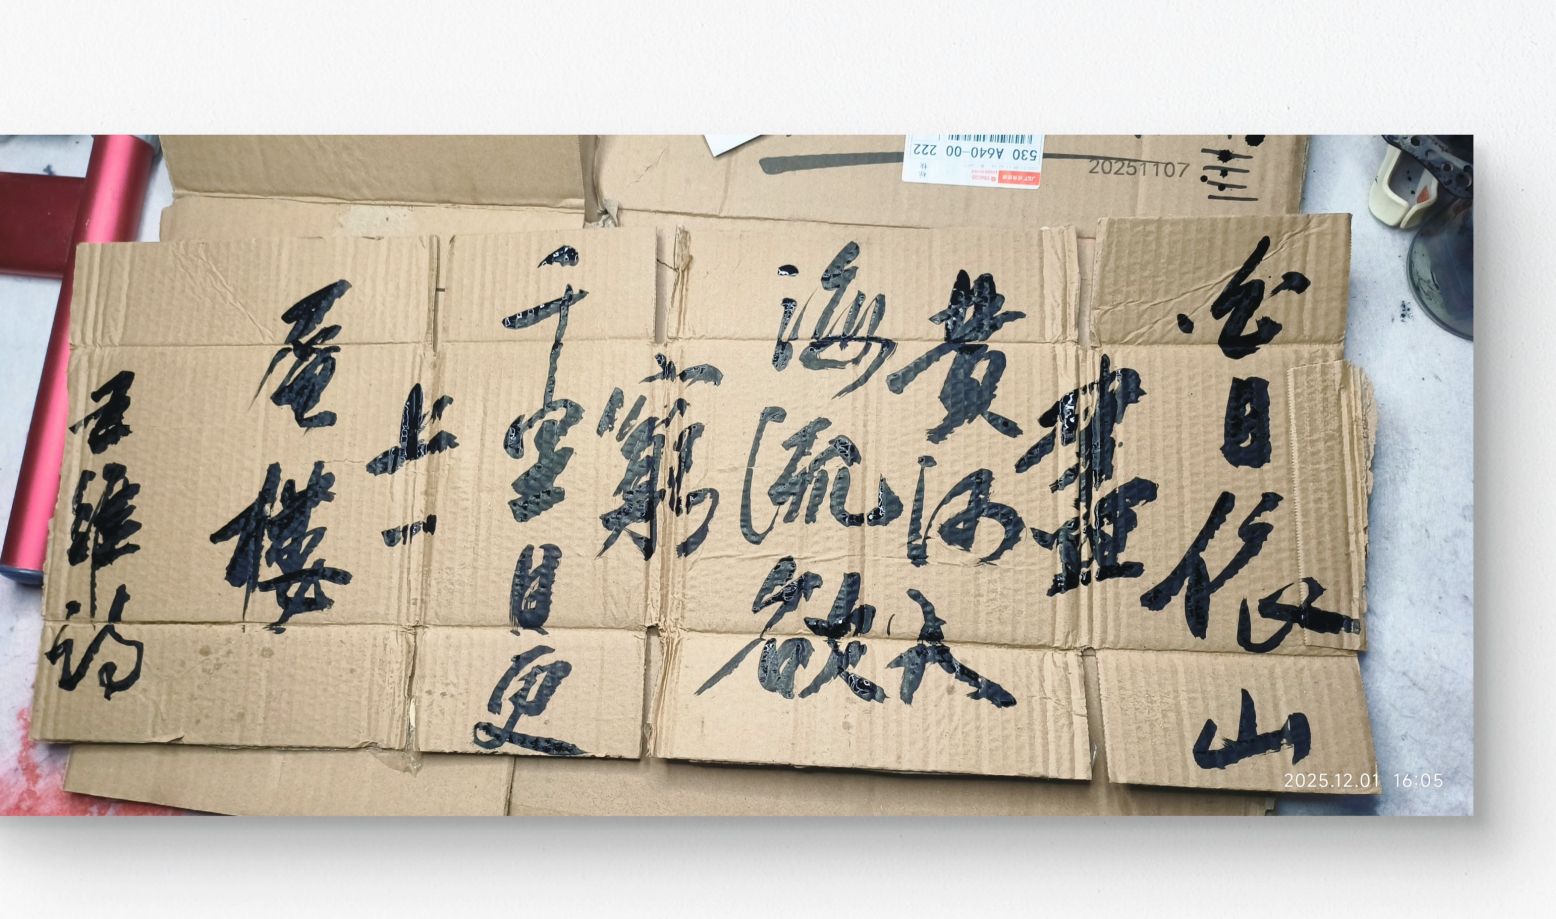 白日依山
盡
黄河入
海流欲
窮
千里目更
上一
層樓
王維詩
530 A640-00 222
20251107
2025.12.01 16:05